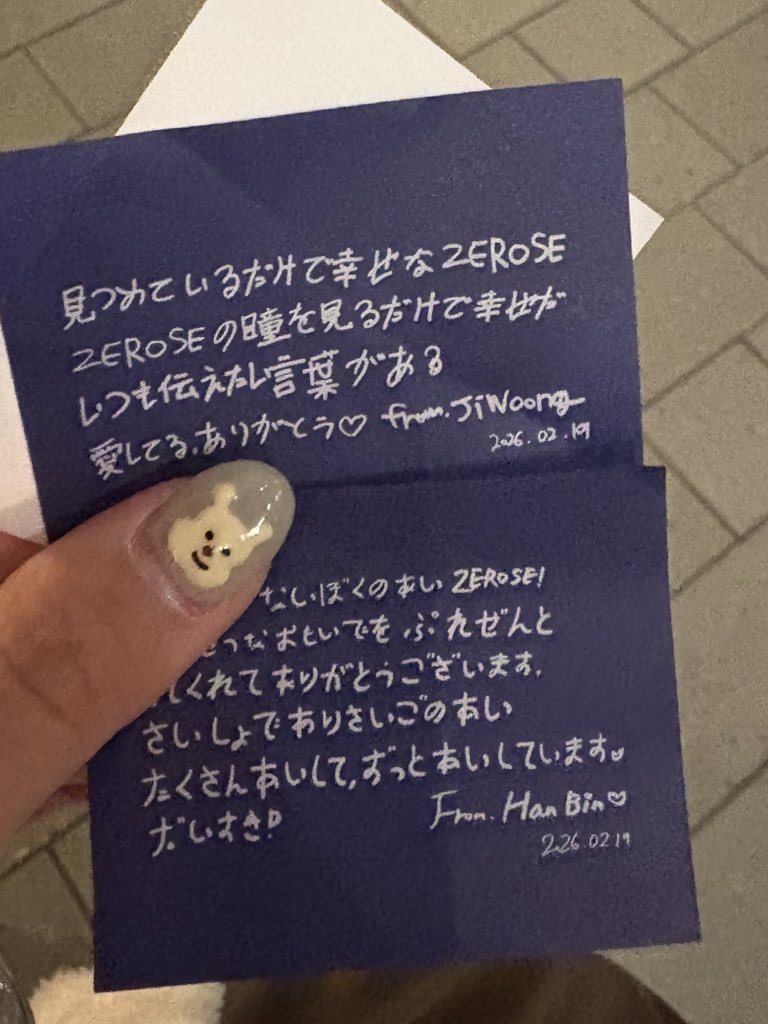 見つめているだけで幸せなZEROSE
ZEROSEの瞳を見るだけで幸せだ
いつも伝えたい言葉がある
愛してる、ありがとう♡ from. JiWoong
2026.02.19
ない ぼくのあい ZEROSE!
なおもいでを ぷれぜんと
してくれて ありがとうございます.
さいしょで ありさいごの あい
たくさん あいして, ずっと あいしています♡
だいすき!?
From. Han Bin♡
2026.02.19